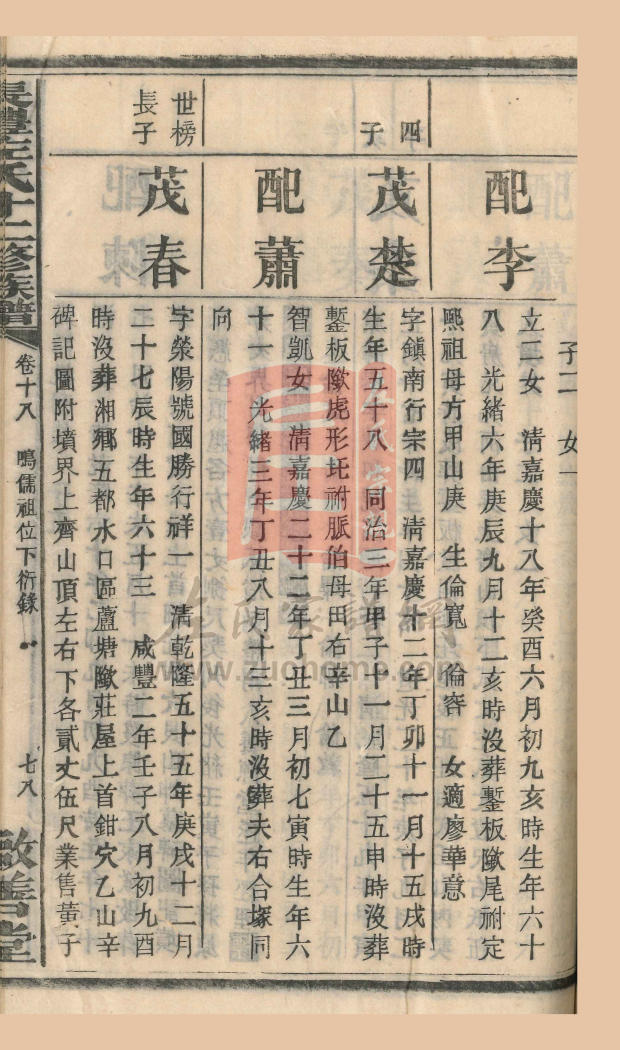 子二 女一
配李
立三女 清嘉慶十八年癸酉六月初九亥時生年六十
八 光緒六年庚辰九月十二亥時沒葬鏨板㘭尾祔定
熙祖母方甲山庚 生倫寬 倫容 女適廖華意
四子
茂楚
字鎮南行宗四 清嘉慶十二年丁卯十一月十五戌時
生年五十八 同治三年甲子十一月二十五申時沒葬
鏨板㘭虎形圫祔脈伯母田右辛山乙
配蕭
智凱女 清嘉慶二十二年丁丑三月初七寅時生年六
十一 光緒三年丁丑八月十三亥時沒葬夫右合塚同
向
世榜長子
茂春
字榮陽號國勝行祥一 清乾隆五十五年庚戌十二月
二十七辰時生年六十三 咸豐二年壬子八月初九酉
時沒葬湘鄉五都水口區蘆塘㘭莊屋上首鉗穴乙山辛
碑記圖附墳界上齊山頂左右下各貳丈伍尺業售黃子
左氏十二修族譜
卷十八 鳴儒祖位下衍錄
七八
敬善堂
www.zuongme.com